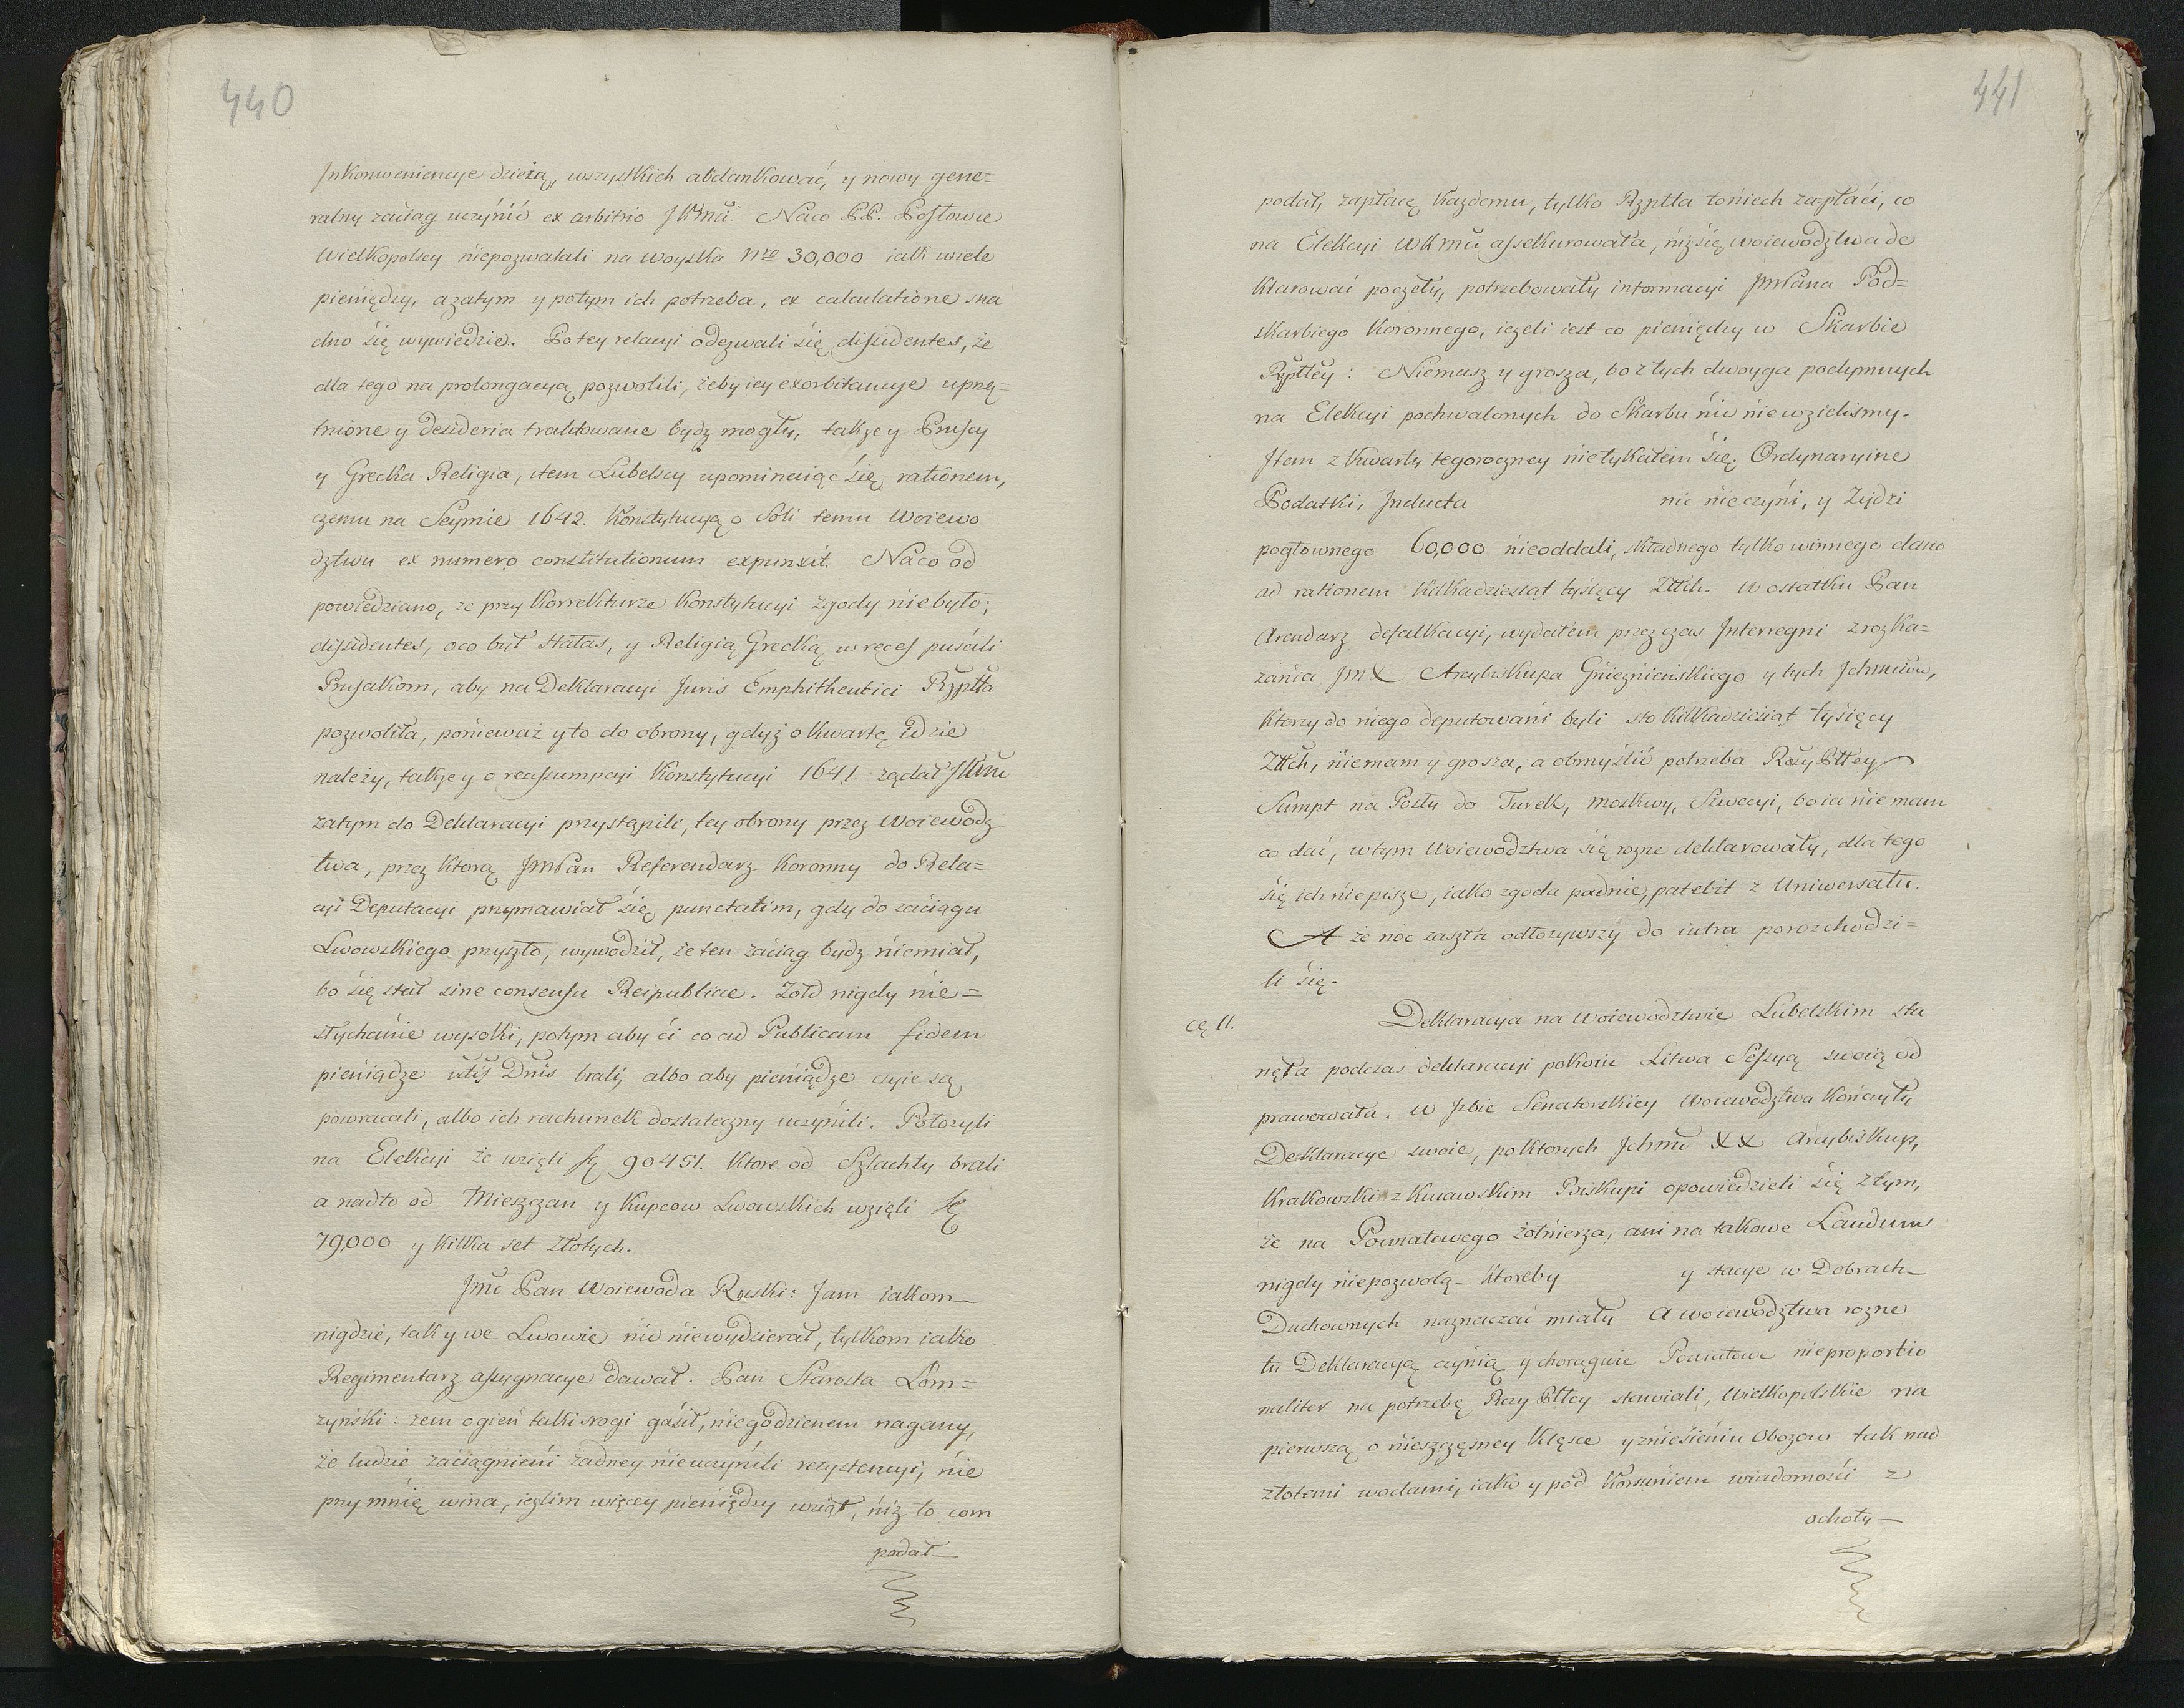 440
Inkonweniencye dzieią, wszystkich abdankować, y nowy gene=
ralny zaciąg uczynić ex arbitrio JKmci. Naco P.P. Posłowie
Wielkopolscy niepozwalali na woyska nro 30,000 iak wiele
pieniędzy, a zatym y potym ich potrzeba, ex calculatione sna
dno się wywiedzie. Po tey relacyi odezwali się dissidentes, że
dla tego na prolongacyą pozwolili, żeby iey exorbitancye uprzą=
tnione y desideria traktowane bydz mogły, także y Pruscy
y Grecka Religia, item Lubelscy upominaiąc się, rationem,
czemu na Seymie 1642. Konstytucyą o Soli temu Woiewo
dztwu ex numero constitutionum expunxit. Naco od
powiedziano, że przy Korrekturze Konstytucyi zgody niebyło;
dissidentes, oco był status, y Religią Grecką w reces puścili
Prusakom, aby na Deklaracyi Juris Emphitheutici Rzptta
pozwoliła, ponieważ y to do obrony, gdyż o Kwartę idzie
należy, także y o reassumpcyi Konstytucyi 1641. żądał JKmc
zatym do Deklaracyi przystąpili, tey obrony przez Woiewodz
twa, przez Ktorą JmPan Referendarz Koronny do Rela=
cyi Deputacyi przymawiał się punctatim, gdy do zaciągu
Lwowskiego przyszło, wywodził, że ten zaciąg bydz niemiał,
bo się stał sine consensu Reipublicae. Żołd nigdy nie=
słychanie wysoki, potym aby ci co ad Publicam fidem
pieniądze brali, albo aby pieniądze czyie są
powracali, albo ich rachunek dostateczny uczynili. Położyli
na Elekcyi że wzięli 90451. Ktore od Szlachty brali
a nadto od Mieszczan y Kupcow Lwowskich wzięli
79,000 y Kilka set Złotych.
Jmc Pan Woiewoda Ruski: Jam iakom
nigdzie, tak y we Lwowie nic niewydzierał, tylkom iako
Regimentarz assygnacye dawał. Pan Starosta Łom=
zyński: żem ogień taki srogi gasił, niegodzienem nagany,
że ludzie zaciągnieni żadney nieuczynili rezystencyi, nie
przy mnię wina, ieżlim więcey pieniędzy wziął, niż to com
podał
441
podał, zapłacę Każdemu, tylko Rzptta to niech zapłaci, co
na Elekcyi WKmci assekurowała, niż się woiewodztwa de
klarować poczęły, potrzebowały informacyi JmPana Pod=
skarbiego Koronnego, ieżeli iest co pieniędzy w Skarbie
Rzptтey: Niemasz y grosza, bo z tych dwoyga podymnych
na Elekcyi pochwalonych do Skarbu nic niewzieliśmy.
Item z Kwarty tegoroczney nietykałem się. Ordynaryine
Podatki, Inducta nic nie czyni, y Żydzi
pogłownego 60,000 nieoddali, składnego tylko winnego dano
ad rationem Kilkadziesiąt tysięcy Złłch. W ostatku Pan
Arendarz defalkacyi, wydałem przez czas Interregni z rozka=
zania JmX Arcybiskupa Gnieznieńskiego y tych Jchmciow,
Ktorzy do niego deputowani byli sto Kilkadziesiąt tysięcy
Złłch, niemam y grosza, a obmyślić potrzeba RzyPttey
Sumpt na Posły do Turek, Moskwy, Szwecyi, bo ia nie mam
co dać, w tym Woiewodztwa się rożne deklarowały, dla tego
się ich niepisze, iako zgoda padnie, patebit z Uniwersału.
A że noc zaszła odłożywszy do iutra porozchodzi=
li się.
cę 11.
Deklaracya na Woiewodztwie Lubelskim sta
nęła podczas deklaracyi pokoiu Litwa Sessyą swoią od
prawowała. W Izbie Senatorskiey Woiewodztwa Kończyły
Deklaracye swoie, po Ktorych Jchmc XX Arcybiskup,
Krakowski z Kuiawskim Biskupi opowiedzieli się z tym,
że na Powiatowego żołnierza, ani na takowe Laudum
nigdy niepozwolą Ktoreby y stacye w Dobrach
Duchownych naznaczać miały A woiewodztwa rozne
tu Deklaracyą czynią y chorągwie Powiatowe nieproportio
naliter na potrzebę RzyPttey stawiali, Wielkopolskie na
pierwszą o nieszczęsney Klęsce y zniesieniu Obozow tak nad
żołtemi wodami, iako y pod Korsuniem wiadomości z
ochoty